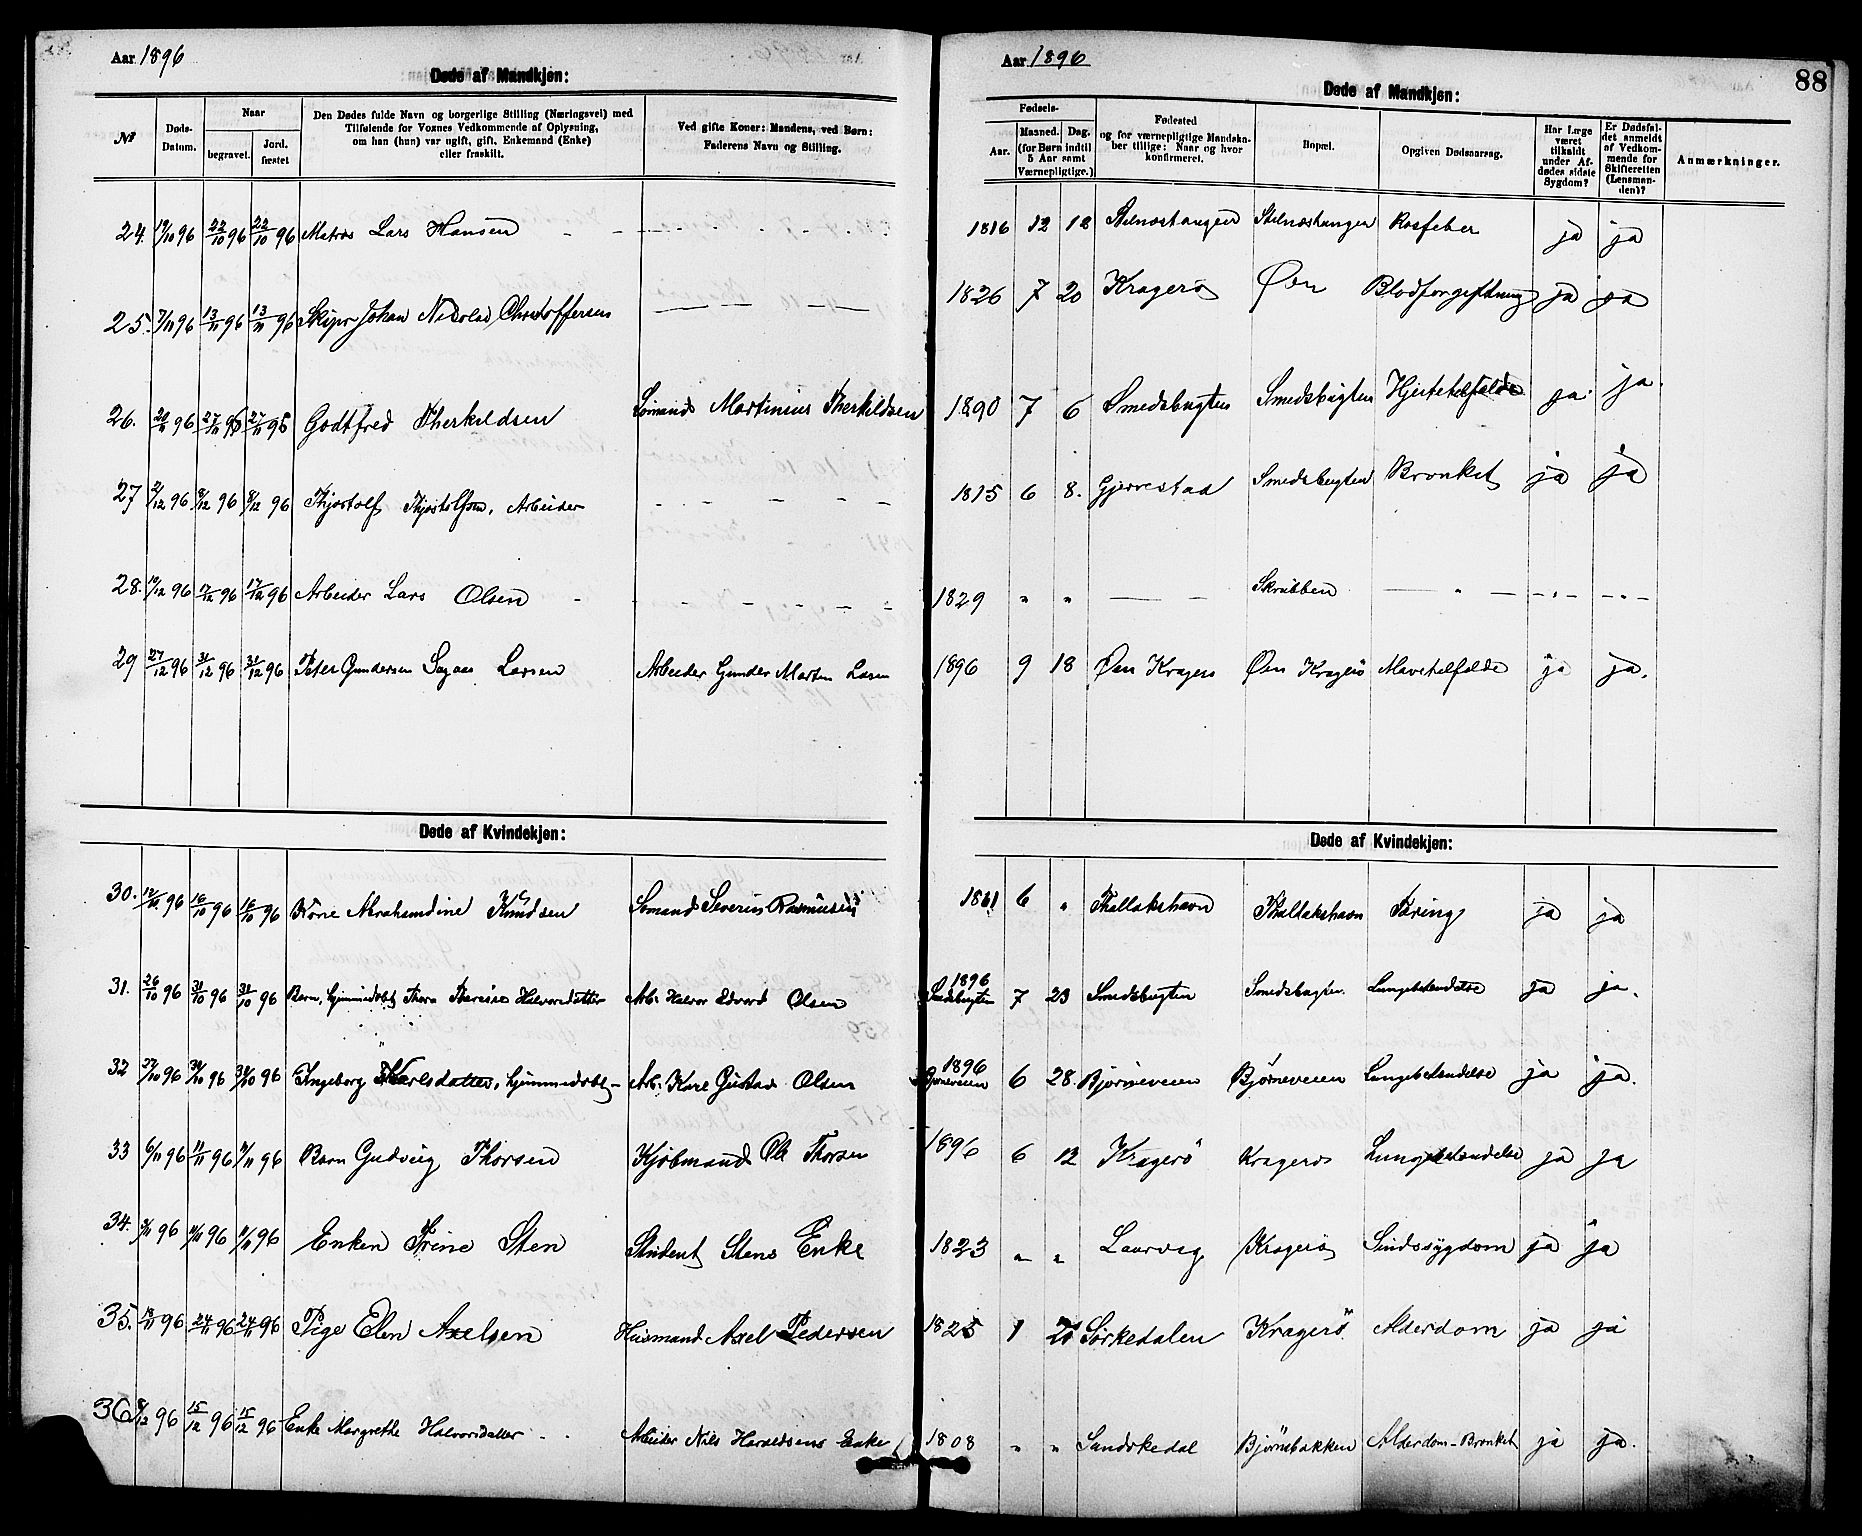 Aar 1896
Døde af Mandkjøn:
№
Døds-Datum.
Naar
begravet.
Jord.fæstet
Den Dødes fulde Navn og borgerlige Stilling (Næringsvei) med
Tilføiende for Voxnes Vedkommende af Oplysning,
om han (hun) var ugift, gift, Enkemand (Enke)
eller fraskilt.
Ved gifte Koner: Mandens, ved Børn:
Faderens Navn og Stilling.
24. 19/10 96 22/10 96 22/10 96 Matros Lars Hansen
25. 7/11 96 13/11 96 13/11 96 Skipr Johan Nicolai Christoffersen
26. 20/11 96 27/11 96 27/11 96 Godtfred Therkildsen Sømand Martinius Therkildsen
27 2/12 96 8/12 96 8/12 96 Thjostolf Thjostolfsen, Arbeider
28. 10/12 96 17/12 96 17/12 96 Arbeider Lars Olsen
29 27/12 96 31/12 96 31/12 96 Peter Gundersen Larsen Arbeider Gunder Martin Larsen
Døde af Kvindekjøn:
30. 12/10 96 16/10 96 16/10 96 Abrahamdine Knudsen Sømand Severin Rasmussen
31. 26/10 96 31/10 96 31/10 96 Barn, hjemmedøbt Thora Halvorsdatter Arb. Halvor Edvard Olsen
32 27/10 96 30/10 96 30/10 96 Ingeborg Karlsdatter, hjemmedøbt Arb. Karl Gustav Olsen
33 6/11 96 11/11 96 11/11 96 Barn Gudvig Thorsen Kjøbmand Ole Thorsen
34. 96 11/11 96 11/11 96 Enken Trine Sten Student Stens Enke
35. 18/11 96 24/11 96 24/11 96 Pige Elen Axelsen Husmand Axel Pedersen
36 8/12 96 15/12 96 15/12 96 Enke Margrethe Halvorsdatter Arbeider Nils Haraldsens Enke
Aar 1896
Døde af Mandkjøn:
88
Fødsels-
Aar.
Maaned. Dag.
(for Børn indtil
5 Aar samt
Værnepligtige.)
Fødested
og for værnepligtige Mandska-
ber tillige: Naar og hvor
konfirmeret.
Bopæl.
Opgiven Dødsaarsag.
Har Læge
været
tilkaldt
under Af-
dødes sidste
Sygdom?
Er Dødsfal-
det anmeldt
af Vedkom-
mende for
Skifteretten
(Lensman-
den)?
Anmærkninger.
1816 12 12 Stilnæstangen Stilnæstangen Rosfeber ja ja
1826 7 20 Kragerø Øen Blodforgiftning ja ja
1890 7 6 Smedsbugten Smedsbugten Hjertetilfælde ja ja
1815 6 8. Gjerrestad Smedsbugten Bronkit ja ja
1829 " " Skrubben "
1896 9 18 Øen Kragerø Øen Kragerö Mavetilfælde ja ja.
Døde af Kvindekjøn:
1861 6 " Thallakshavn Thallakshavn Tæring ja ja
1896 Smedsbugten 7 23 Smedsbugten Smedsbugten Lungebetændelse ja ja.
1896 Bjørneveien 6 28. Bjørneveien Bjørneveien Lungebetændelse ja ja.
1896 6 12 Kragerö Kragerø Lungebetændelse ja ja
1823 " " Laurvig Kragerø Sindssygdom ja ja
1825 1 Sørkedalen Kragerö Alderdom ja ja
1808 " " Sandøkedal Bjørnebakken Alderdom - Bronkit ja ja.